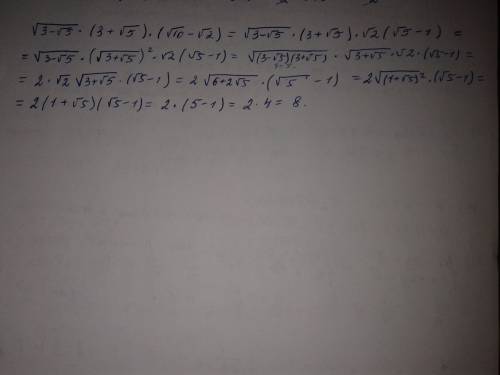 √(3-√5) · (3+√5) · (√10 - √2) = √(3-√5) · (3+√5) · √2 (√5 - 1) =
= √(3-√5) · (√(3+√5))² · √2 (√5 - 1) = √((3-√5)(3+√5)) · √(3+√5) · √2 · (√5-1) =
= 2 · √2 √(3+√5) · (√5-1) = 2 √(6+2√5) · (√5 - 1) = 2√((1+√5)²) · (√5-1) =
= 2(1+√5)(√5-1) = 2 · (5-1) = 2 · 4 = 8.